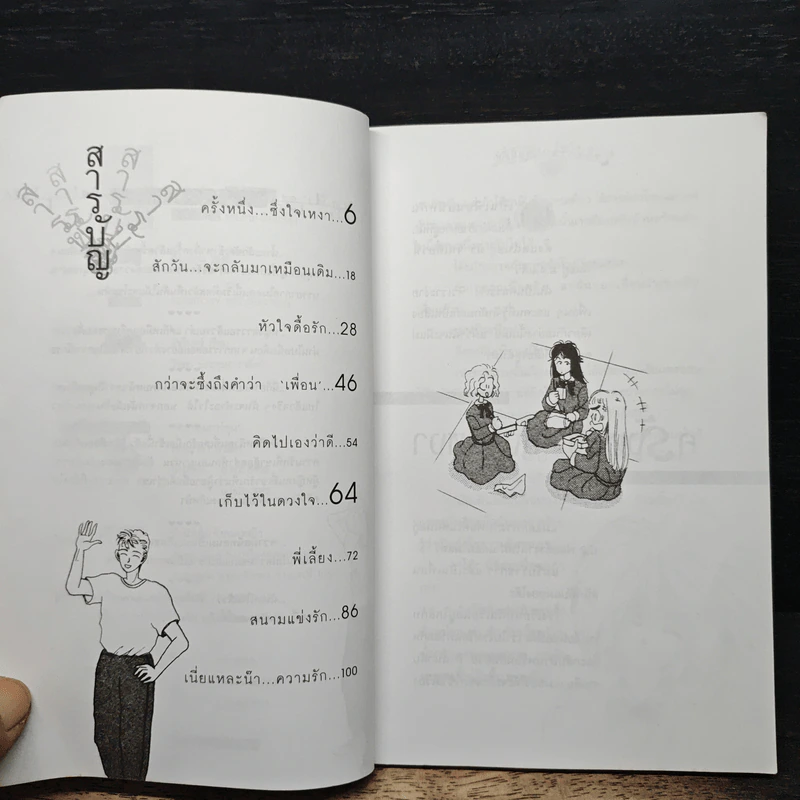 สารบัญ
ครั้งหนึ่ง...ซึ่งใจเหงา...6
สักวัน...จะกลับมาเหมือนเดิม...18
หัวใจดื้อรัก...28
กว่าจะซึ้งถึงคำว่า 'เพื่อน'...46
คิดไปเองว่าดี...54
เก็บไว้ในดวงใจ...64
พี่เลี้ยง...72
สนามแข่งรัก...86
เนี่ยแหละน๊า...ความรัก...100